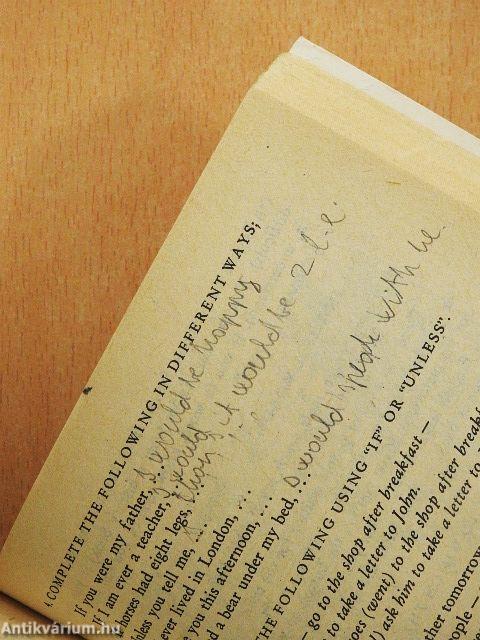 4. COMPLETE THE FOLLOWING IN DIFFERENT WAYS;
If you were my father, ... I would be happy
I am ever a teacher, I would
horses had eight legs, ... than it would be 2
unless you tell me, ...
ever lived in London, ...
you this afternoon, ...
a bear under my bed, ... I would speak with he.
THE FOLLOWING USING "IF" OR "UNLESS".
go to the shop after breakfast —
to take a letter to John.
goes (went) to the shop after breakf
ask him to take a letter to
her tomorrow
ple —
Antikvárium.hu